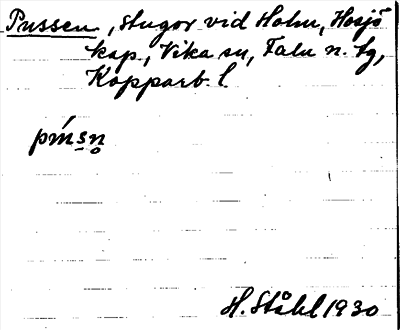 Pussen, stugor vid Holn, Hosjö
kap., Vika sn, Falu n. tg,
Kopparb. l.
H. Ståhl 1930